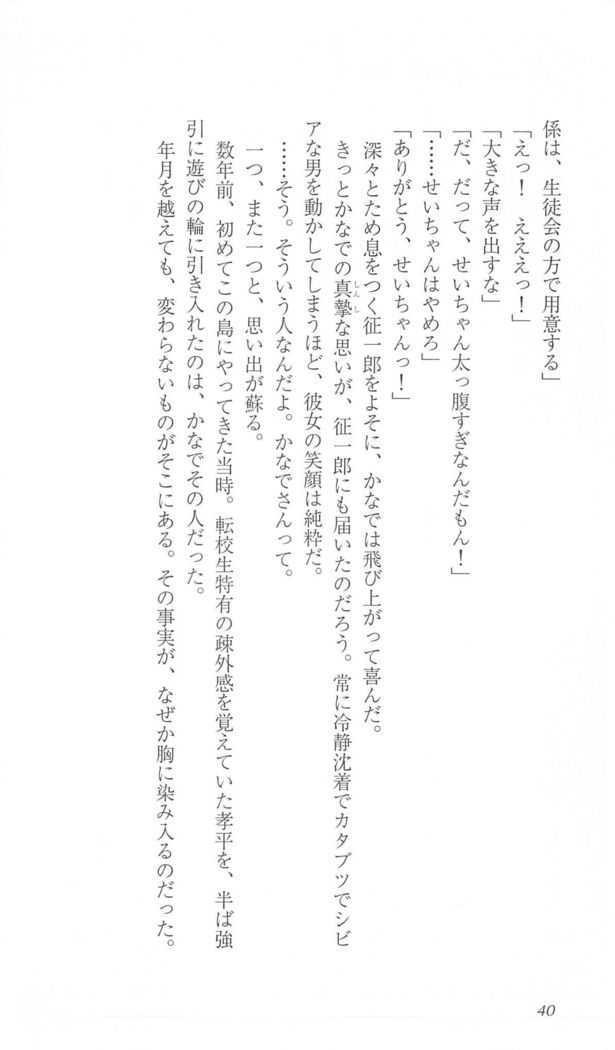 係は、生徒会の方で用意する」
「えっ！　えええっ！」
「大きな声を出すな」
「だ、だって、せいちゃん太っ腹すぎなんだもん！」
「……せいちゃんはやめろ」
「ありがとう、せいちゃんっ！」
深々とため息をつく征一郎をよそに、かなでは飛び上がって喜んだ。
きっとかなでの真摯な思いが、征一郎にも届いたのだろう。常に冷静沈着でカタブツでシビ
アな男を動かしてしまうほど、彼女の笑顔は純粋だ。
……そう。そういう人なんだよ。かなでさんって。
一つ、また一つと、思い出が蘇る。
数年前、初めてこの島にやってきた当時。転校生特有の疎外感を覚えていた孝平を、半ば強
引に遊びの輪に引き入れたのは、かなでその人だった。
年月を越えても、変わらないものがそこにある。その事実が、なぜか胸に染み入るのだった。
しんし
40